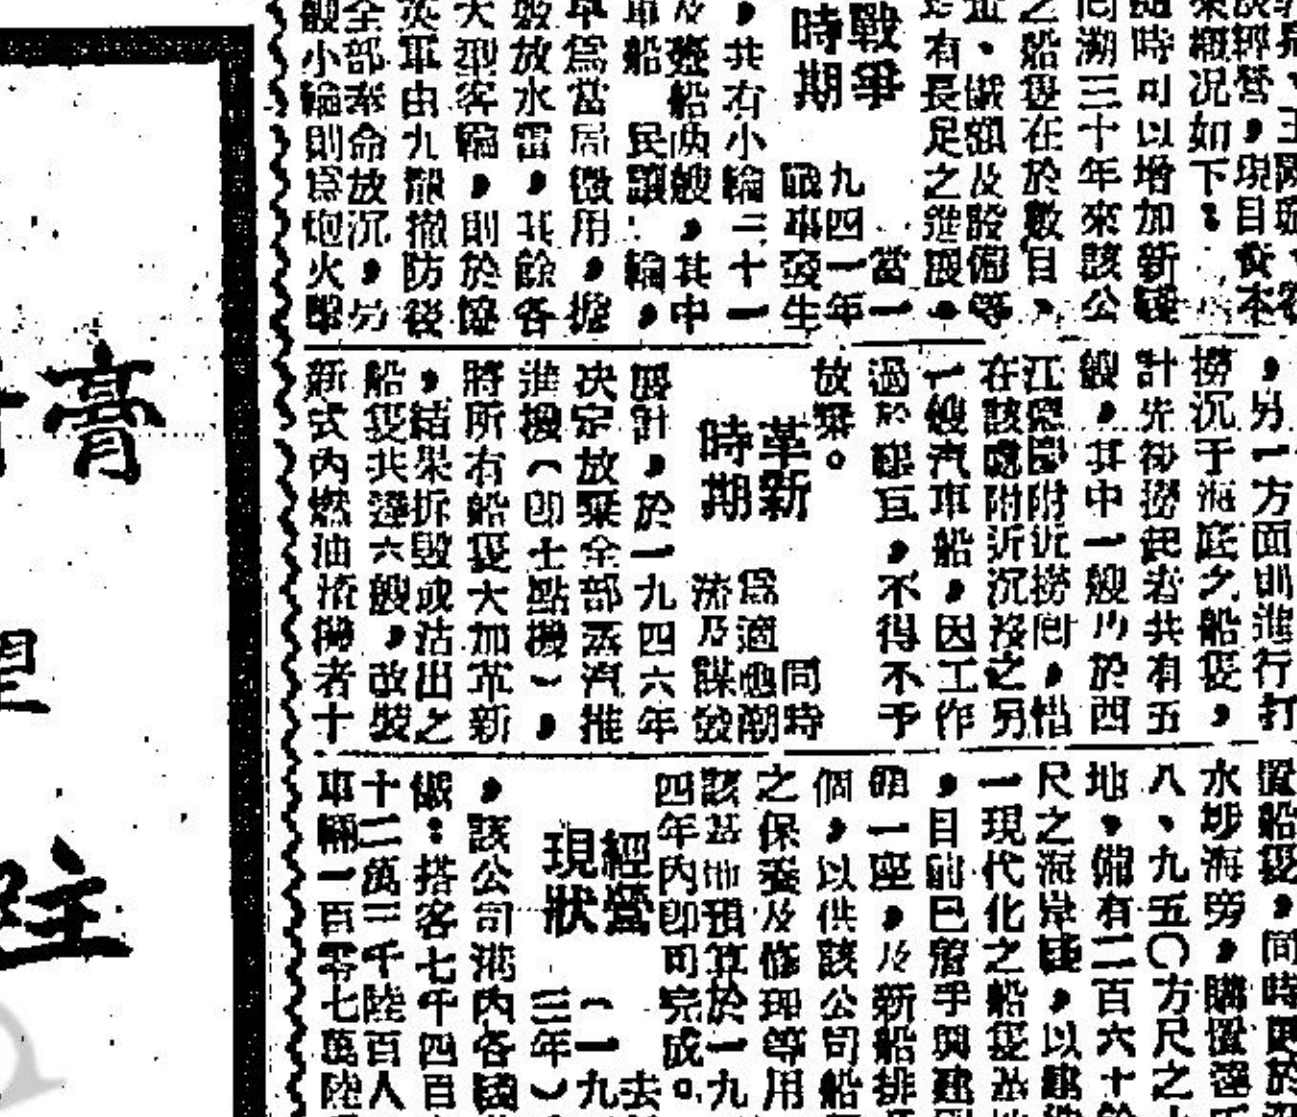 ,現目資本
概況如下:
隨時可以增加新
溯三十年來該公
之船隻在於數目、
、儎額及設備等
有長足之進展。
戰爭
時期
當一
九四一年
戰事發生
,共有小輪二十一
及躉船兩艘,其中
車船 民讓 輪,
為當局徵用,擔
放水雷,其餘各
大型客輪,則於協
英軍由九龍撤防後
全部奉命放沉,另
艘小輪則為炮火擊
,另一方面則進行打
撈沉于海底之船隻,
計先後撈起者共有五
艘,其中一艘乃於西
江 附近撈回,惜
在該處附近沉沒之另
一艘汽車船,因工作
過於艱巨,不得不予
放棄。
革新
時期
同時
為適應潮
流乃謀發
展計,於一九四六年
決定放棄全部蒸汽推
進機(即士點機),
將所有船隻大加革新
,結果拆毀或沽出之
船隻共達六艘,改裝
新式內燃油渣機者十
置船隻,同時更於
水埗海旁,購置
八、九五〇方尺之
地,備有二百六十餘
尺之海岸綫,以建
一現代化之船隻基地
,目前已着手興建
一座,及新船排
個,以供該公司船
之保養及修理等用
該基地預算於一九
四年內即可完成。
經營
現狀
去
(一九
三年)
,該公司港內各綫
儎:搭客七千四百
十二萬三千陸百人
車輛一百零七萬陸
膏